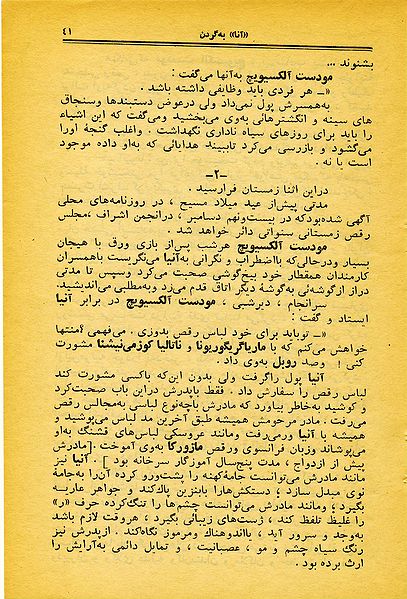 «آنا» به گردن
٤١
بشنوند ...
مودست آلکسیویچ به‌آنها می‌گفت :
«ـ هر فردی باید وظایفی داشته باشد .
به‌همسرش پول نمی‌داد ولی درعوض دستبندها وسنجاق
های سینه و انگشترهائی به‌وی می‌بخشید ومی‌گفت که این اشیاء
را باید برای روزهای سیاه ناداری نگهداشت . واغلب گنجهٔ اورا
می‌گشود و بازرسی می‌کرد تاببیند هدایائی که به‌او داده موجود
است یا نه .
ـ۲ـ
دراین اثنا زمستان فرارسید .
مدتی پیش‌از عید میلاد مسیح ، در روزنامه‌های محلی
آگهی شده‌بودکه در بیست‌ونهم دسامبر ، درانجمن اشراف ،مجلس
رقص زمستانی سنواتی دائر خواهد شد .
مودست آلکسیویچ هرشب پس‌از بازی ورق با هیجان
بسیار ودرحالی‌که بااضطراب و نگرانی به‌آنیا می‌نگریست باهمسران
کارمندان همقطار خود بیخ‌گوشی صحبت می‌کرد وسپس تا مدتی
دراز ازگوشه‌ئی به‌گوشهٔ دیگر اتاق قدم می‌زد وبه‌مطلبی می‌اندیشید.
سرانجام ، دیرشبی ، مودست آلکسیویچ در برابر آنیا
ایستاد و گفت :
«ـ توباید برای خود لباس رقص بدوزی . می‌فهمی ؟منتها
خواهش می‌کنم که با ماریاگریگوریونا و ناتالیا کوزمی‌نیشنا مشورت
کنی ! وصد روبل به‌وی داد .
آنیا پول راگرفت ولی بدون این‌که باکسی مشورت کند
لباس رقص را سفارش داد . فقط باپدرش دراین باب صحبت‌کرد
و کوشید به‌خاطر بیاورد که مادرش باچه‌نوع لباسی به‌مجالس رقص
می‌رفت . مادر مرحومش همیشه طبق آخرین مد لباس می‌پوشید و
همیشه با آنیا ورمی‌رفت ومانند عروسکی لباس‌های قشنگ به‌او
می‌پوشاند وزبان فرانسوی ورقص مازورکا به‌وی آموخت .[مادرش
پیش از ازدواج ، مدت پنج‌سال آموزگار سرخانه بود ] . آنیا نیز
مانند مادرش می‌توانست جامهٔ‌کهنه را پشت‌ورو کرده آن‌را به‌جامهٔ
نوی مبدل سازد ؛ دستکش‌هارا بابنزین پاک‌کند و جواهر عاریه
بگیرد؛ ومانند مادرش می‌توانست چشم‌ها را تنگ‌کرده حرف «ر»
را غلیظ تلفظ کند ، ژست‌های زیبائی بگیرد ، هروقت لازم باشد
به‌وجد و سرور آید ، بااندوهناک ومرموز نگاه‌کند . ازپدرش نیز
رنگ سیاه چشم و مو ، عصبانیت ، و تمایل دائمی به‌آرایش را
ارث برده بود .